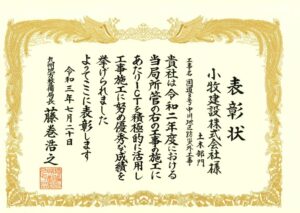 表彰状
土木部門
小牧建設株式会社様
貴社は令和二年度における
当局所管の右の工事の施工に
あたりICTを積極的に活用し
工事施工に努め優秀な成績を
挙げられました
よってここに表彰します
令和三年七月二十日
九州地方整備局長 藤巻浩之